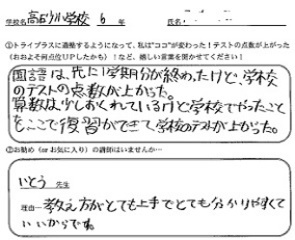 学校名 高石小学校 6 年 氏名
①トライプラスに通塾するようになって、私は"ココ"が変わった！テストの点数が上がった
（おおよそ何点位UPしたかも）！など、嬉しい言葉を聞かせてください！
国語は、先に1学期分が終わたけど、学校
のテストの点数が上がった。
算数は少しおくれているけど学校でやったこと
をここで復習ができて学校のテストが上がった。
②お勧め（or お気に入り）の講師はいませんか…
いとう 先生
理由― 教え方がとても上手でとても分かりやすくて
いいからです。